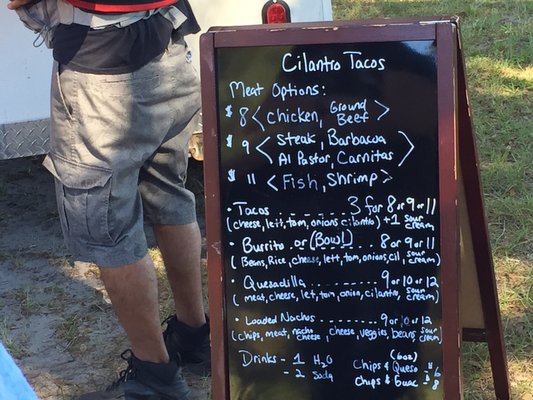 Cilantro Tacos
Meat Options:
$8 < Chicken, Ground Beef >
$9 < Steak, Barbacoa
Al Pastor, Carnitas >
$11 < Fish, Shrimp >
• Tacos ------- 3 for 8 or 9 or 11
(cheese, lett, tom, onions cilantro) +1 sour cream
• Burrito or (Bowl) ... 8 or 9 or 11
(Beans, Rice, cheese, lett, tom, onions, cil, sour cream)
• Quesadilla ------- 9 or 10 or 12
(meat, cheese, let, tom, onion, cilantro, sour cream)
• Loaded Nachos ------- 9 or 10 or 12
(chips, meat, nacho cheese, cheese, veggies, beans, sour cream)
Drinks - 1 H2O
- 2 Soda
(6oz)
Chips & Queso $6
Chips & Guac $8